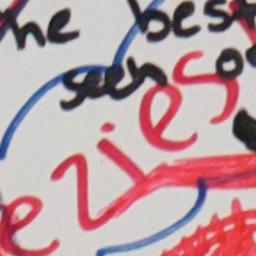 he best
seen o
ezies